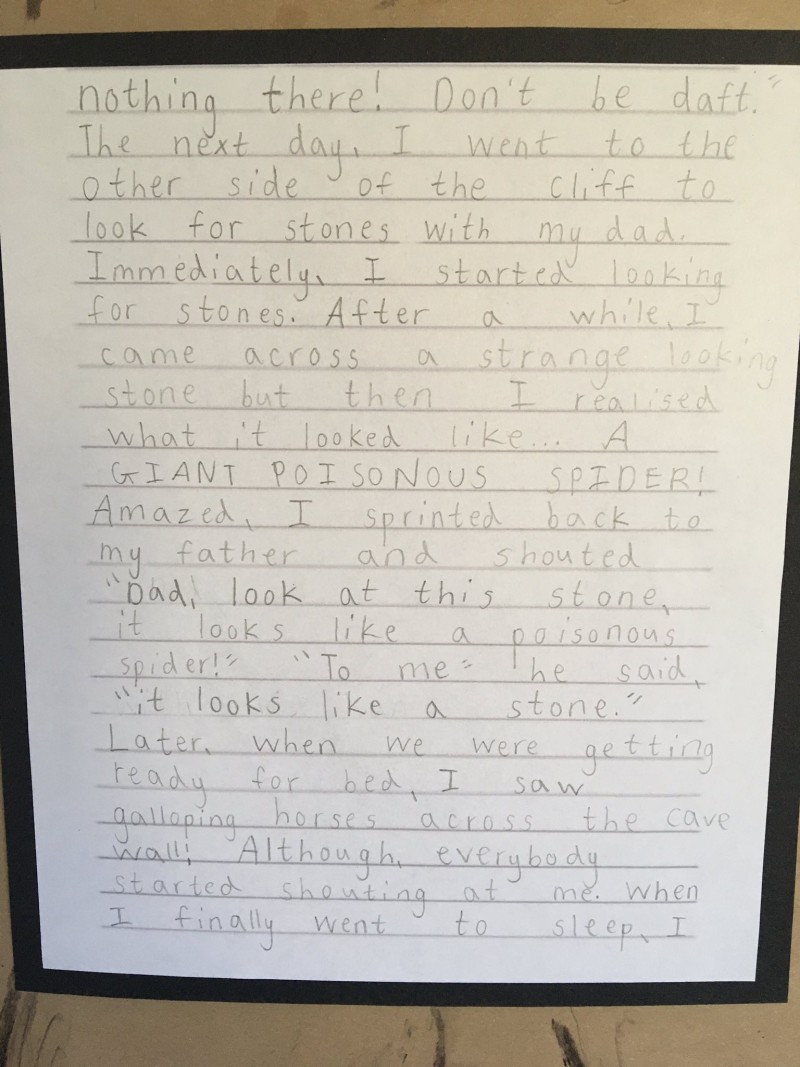 nothing there! Don't be daft."
The next day, I went to the
other side of the cliff to
look for stones with my dad.
Immediately, I started looking
for stones. After a while, I
came across a strange looking
stone but then I realised
what it looked like... A
GIANT POISONOUS SPIDER!
Amazed, I sprinted back to
my father and shouted
"Dad, look at this stone,
it looks like a poisonous
spider!" "To me" he said,
"it looks like a stone."
Later, when we were getting
ready for bed, I saw
galloping horses across the cave
wall! Although, everybody
started shouting at me. When
I finally went to sleep, I